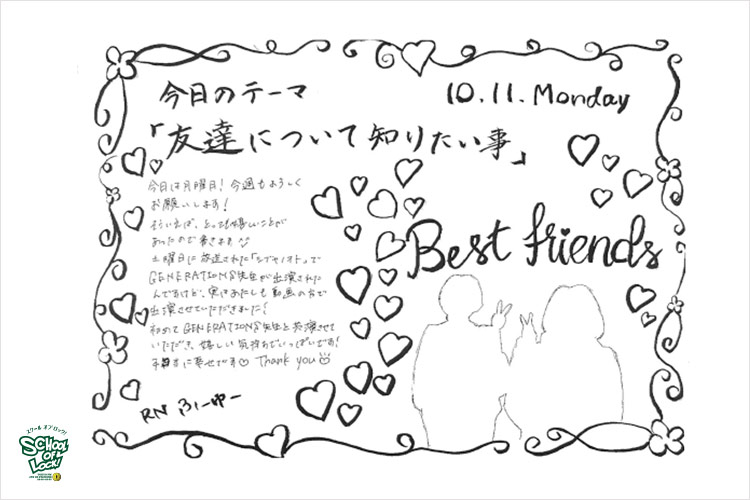 今日のテーマ
10.11.Monday
「友達について知りたい事」
今日は月曜日!今週もよろしく
お願いします!
そういえば、とっても嬉しいことが
あったので書きます
土曜日に放送された「シブヤノオト」で
GENERATIONS先生が出演された
んですけど、実はあたしも動画の方で
出演させていただきました!
初めてGENERATIONS先生と共演させて
いただき、嬉しい気持ちでいっぱいです!
本当に幸せです♡ Thank you
RN ふーゆー
Best friends
スクール オブ ロック!
SCHOOL
OF
LOCK!